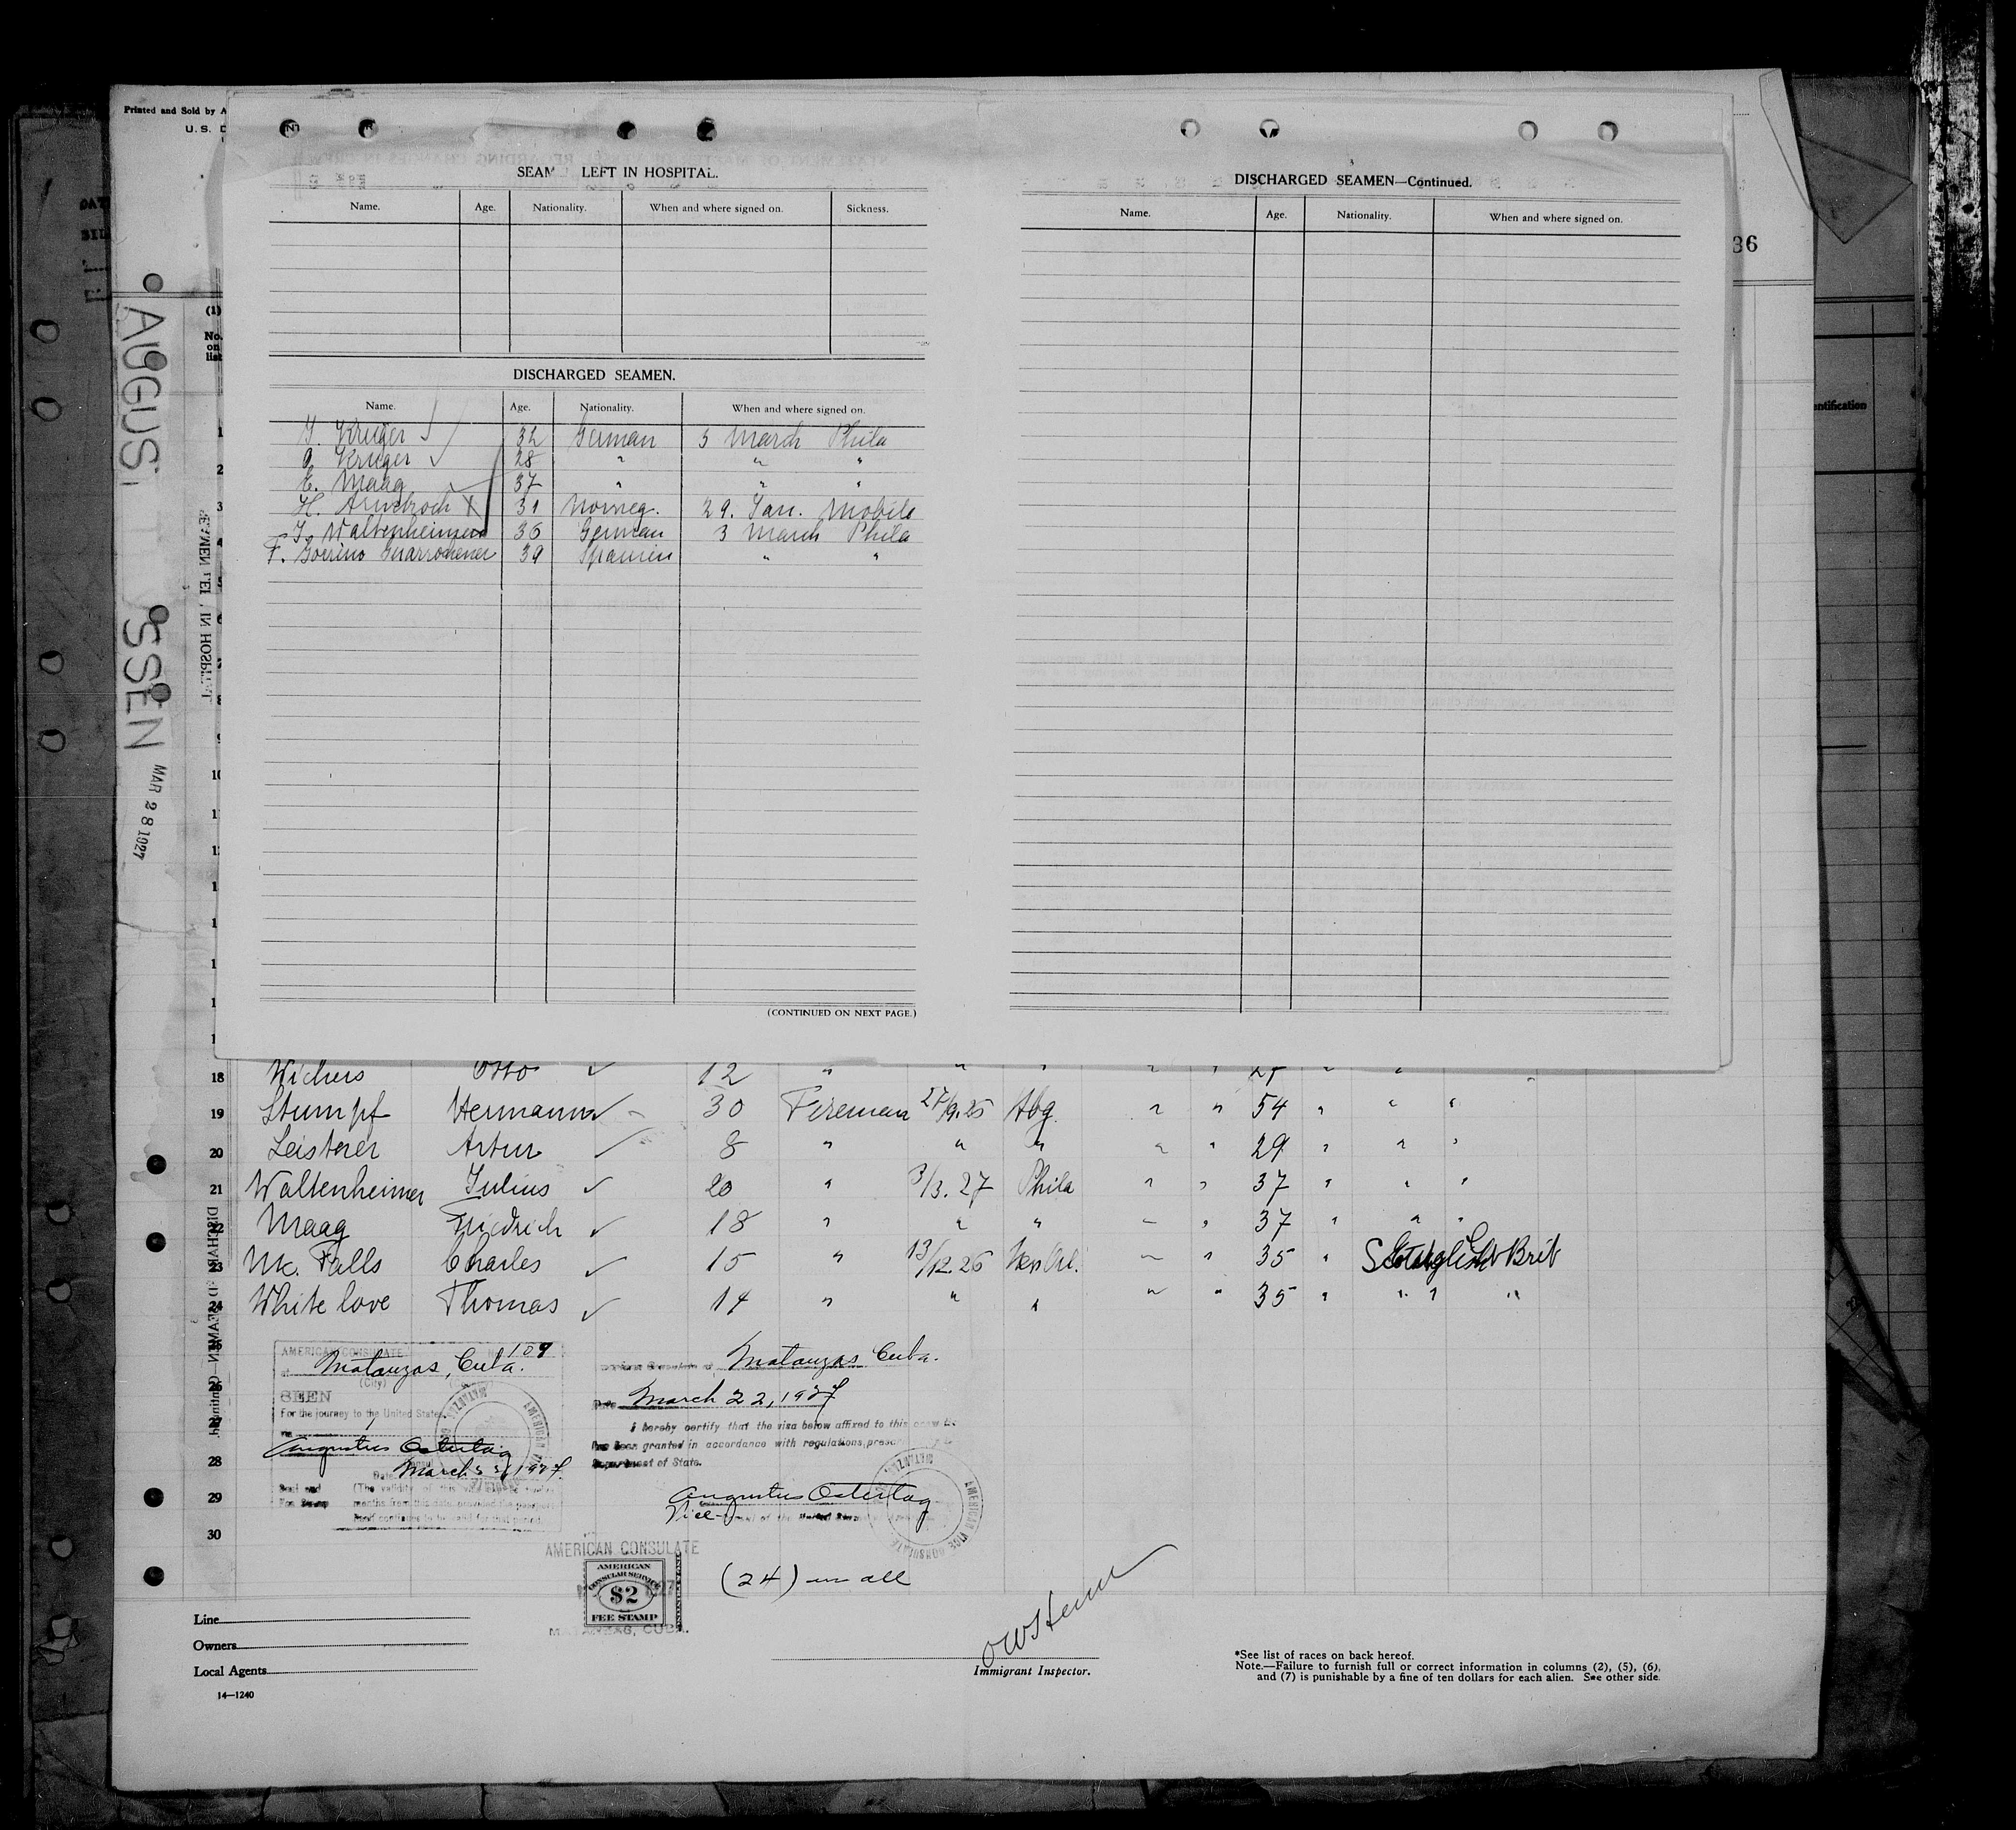 Printed and Sold by A
U. S. D
36
AUGUST
SSEN
MAR 28 1927
(1)
No. on list
SEAM LEFT IN HOSPITAL.
Name. Age. Nationality. When and where signed on. Sickness.
DISCHARGED SEAMEN.
Name. Age. Nationality. When and where signed on.
J. Krüger 32 German 3 March Phila
O. Krüger 28 " " "
E. Maag 37 " " "
H. 31 Norweg. 29. Jan. Mobile
J. Waltenheimer 36 German 3 March Phila
F. 39 " "
(CONTINUED ON NEXT PAGE.)
DISCHARGED SEAMEN—Continued.
Name. Age. Nationality. When and where signed on.
entification
18 Wichers Otto 12 " " " " "
19 Stumpf Hermann 30 Fireman 27/9.25 Hbg. " " 54 " " "
20 Leisterer Artur 8 " " " " " 29 " " "
21 Waltenheimer Julius 20 " 3/3.27 Phila " " 37 " " "
22 Maag Friedrich 18 " " " " " 37 " " "
23 Mc. Falls Charles 15 " 13/12.26 New Orl. " " 35 " Brit
24 White love Thomas 14 " " " " " 35 " " " "
26
27
28
29
30
AMERICAN CONSULATE 109
at Matanzas, Cuba.
(City)
SEEN
For the journey to the United States
Augustus Ostertag
Date March 22, 1927.
Seal and Fee Stamp
(The validity of this
months from this date, provided the passport
itself continues to be valid for that period.
Matanzas Cuba.
Date March 22, 1927
I hereby certify that the visa below affixed to this crew li
has been granted in accordance with regulations prescr
Department of State.
Augustus Ostertag
Vice
AMERICAN VICE CONSULATE
MATANZAS
AMERICAN CONSULATE
AMERICAN
CONSULAR SERVICE
$2
FEE STAMP
MATANZAS, CUBA.
(24) in all
Line
Owners
Local Agents
14—1240
Immigrant Inspector.
*See list of races on back hereof.
Note.—Failure to furnish full or correct information in columns (2), (5), (6),
and (7) is punishable by a fine of ten dollars for each alien. See other side.